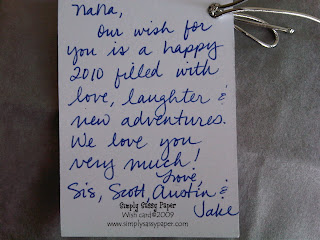 NaNa,
Our wish for
you is a happy
2010 filled with
love, laughter &
new adventures.
We love you
very much!
Love,
Sis, Scott, Austin &
Jake
Simply Sassy Paper
Wish card©2009
www.simplysassypaper.com